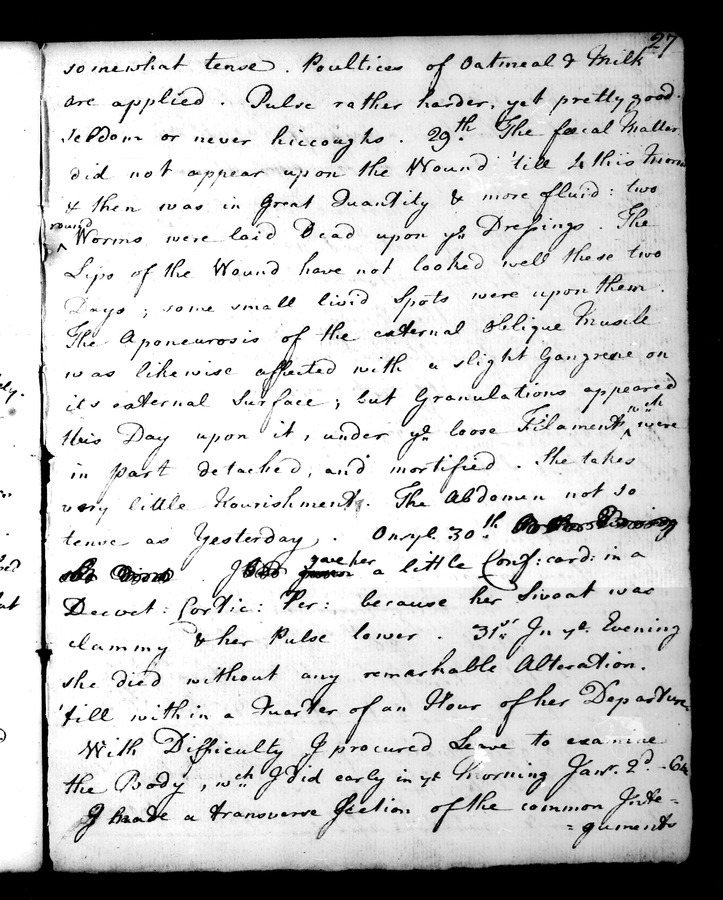 27
somewhat tense. Poultices of Oatmeal & Milk
are applied. Pulse rather harder, yet pretty good.
seldom or never hiccoughs. 29th. The fœcal Matter
did not appear upon the Wound 'till 4 this Morn
& then was in great Quantity & more fluid: two
round
^ Worms were laid Dead upon ye Dressings. The
Lips of the Wound have not looked well these two
Days; some small livid Spots were upon them.
The Aponeurosis of the external oblique Muscle
was likewise affected with a slight Gangrene on
its external Surface; but Granulations appeared
this Day upon it, under ye loose Filaments, ^ wch were
in part detached, and mortified. She takes
very little Nourishment. The Abdomen not so
tense as Yesterday. 30th
I gave her a little Conf: card: in a
Decoct: Cortic: Per: because her Sweat was
clammy & her Pulse lower. 31st In ye Evening
she died without any remarkable Alteration.
'till within a Quarter of an Hour of her Departure.
With Difficulty I procured Leave to examine
the Body, wch I did early in ye Morning Janr. 2d.
I made a transverse Section of the common Inte=
=guments